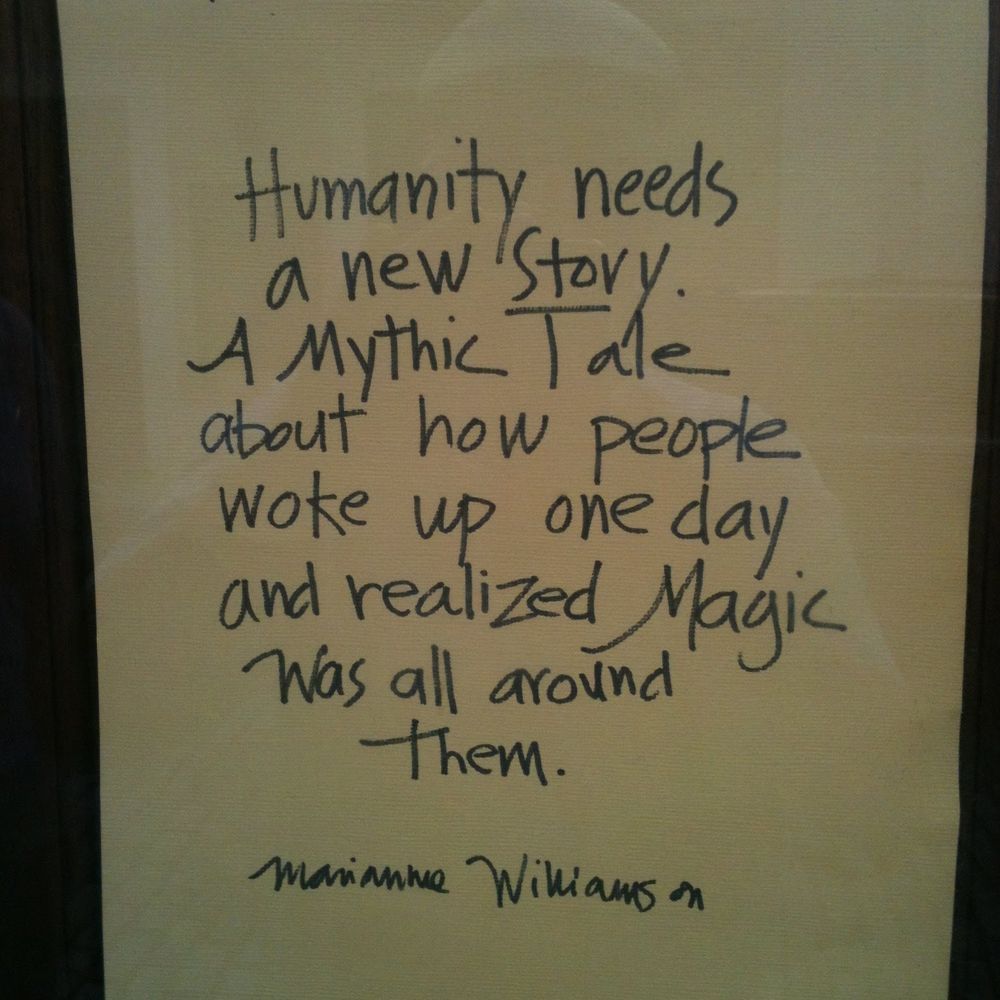 Humanity needs
a new Story.
A Mythic Tale
about how people
woke up one day
and realized Magic
Was all around
Them.
Marianne Williamson